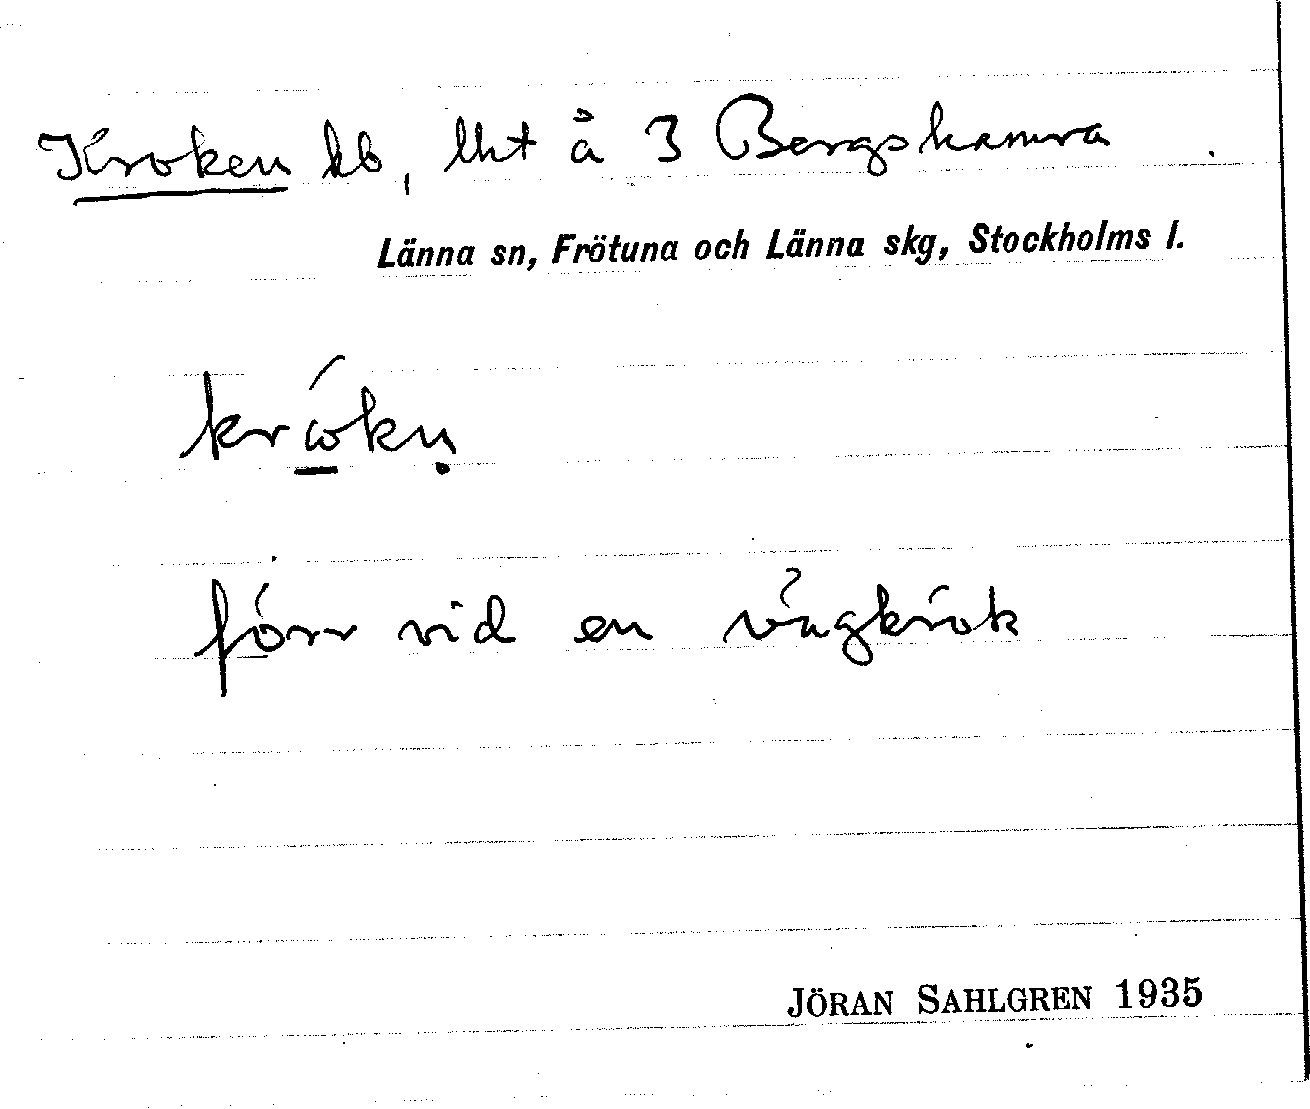 Kroken kb, lht å 3 Bergshamra
Länna sn, Frötuna och Länna skg, Stockholms l.
kró̲kṇ
förr vid en vägkrok
JÖRAN SAHLGREN 1935